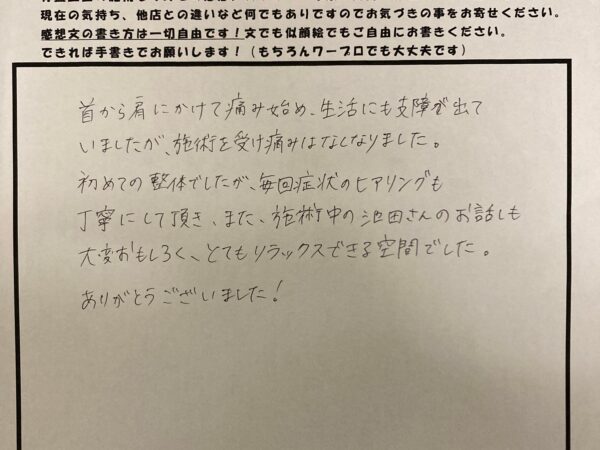 現在の気持ち、他店との違いなど何でもありですのでお気づきの事をお寄せください。
感想文の書き方は一切自由です！文でも似顔絵でもご自由にお書きください。
できれば手書きでお願いします！（もちろんワープロでも大丈夫です）
首から肩にかけて痛み始め、生活にも支障が出て
いましたが、施術を受け痛みはなくなりました。
初めての整体でしたが、毎回症状のヒアリングも
丁寧にして頂き、また、施術中の池田さんのお話しも
大変おもしろく、とてもリラックスできる空間でした。
ありがとうございました！